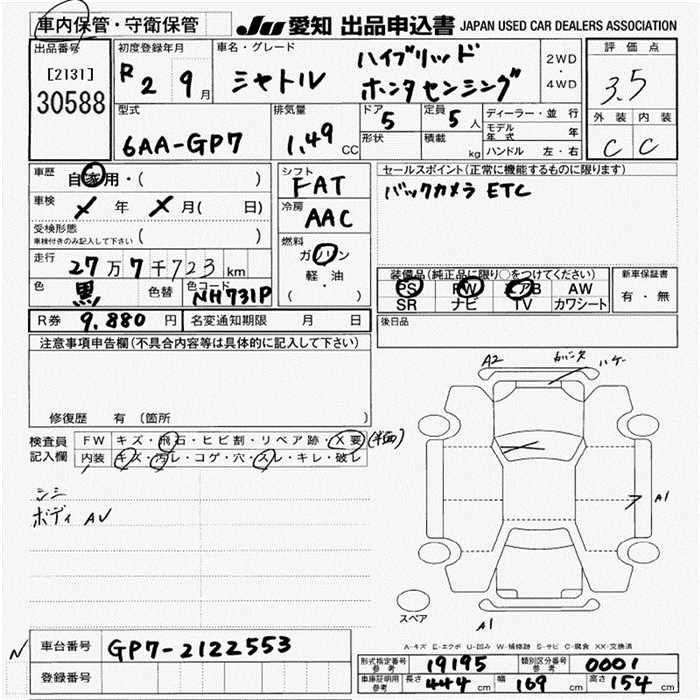 車内保管・守衛保管 JU 愛知 出品申込書 JAPAN USED CAR DEALERS ASSOCIATION
出品番号 初度登録年月 車名・グレード 評価点
[2131] R 2 9月 シャトル ハイブリッド 2WD
30588 ホンダセンシング ・ 4WD 3.5
型式 排気量 ドア 5 定員 5人 ディーラー・並行 外装 内装
6AA-GP7 1.49 CC 形状 積載 kg モデル年式 年 C C
ハンドル 左・右
車歴 自家用・( ) シフト FAT セールスポイント(正常に機能するものに限ります)
車検 年 月( 日) 冷房 AAC バックカメラ ETC
受検形態
車検付きのみ記入して下さい ( ) 燃料
走行 27万7千723km ガソリン 装備品(純正品に限り○をつけてください) 新車保証書
色 黒 色替 色コード NH731P 軽・油 PS PW エアB AW 有・無
( ) SR ナビ TV カワシート
R券 9,880円 名変通知期限 月 日 後日品
注意事項申告欄(不具合内容等は具体的に記入して下さい)
修復歴 有(箇所 )
検査員 FW キズ・飛石・ヒビ割・リペア跡・X要
記入欄 内装 キズ・汚レ・コゲ・穴・スレ・キレ・破レ
シミ
ボディ AU
A2 ハゲ
A1
スペア
A1
A-キズ E-エクボ U-凹み W-補修跡 S-サビ C-腐食 XX-交換済
N 車台番号 GP7-2122553
登録番号
形式指定番号 参考 19195 類別区分番号 参考 0001
車庫証明用 参考 長さ 444cm 幅 169cm 高さ 154cm